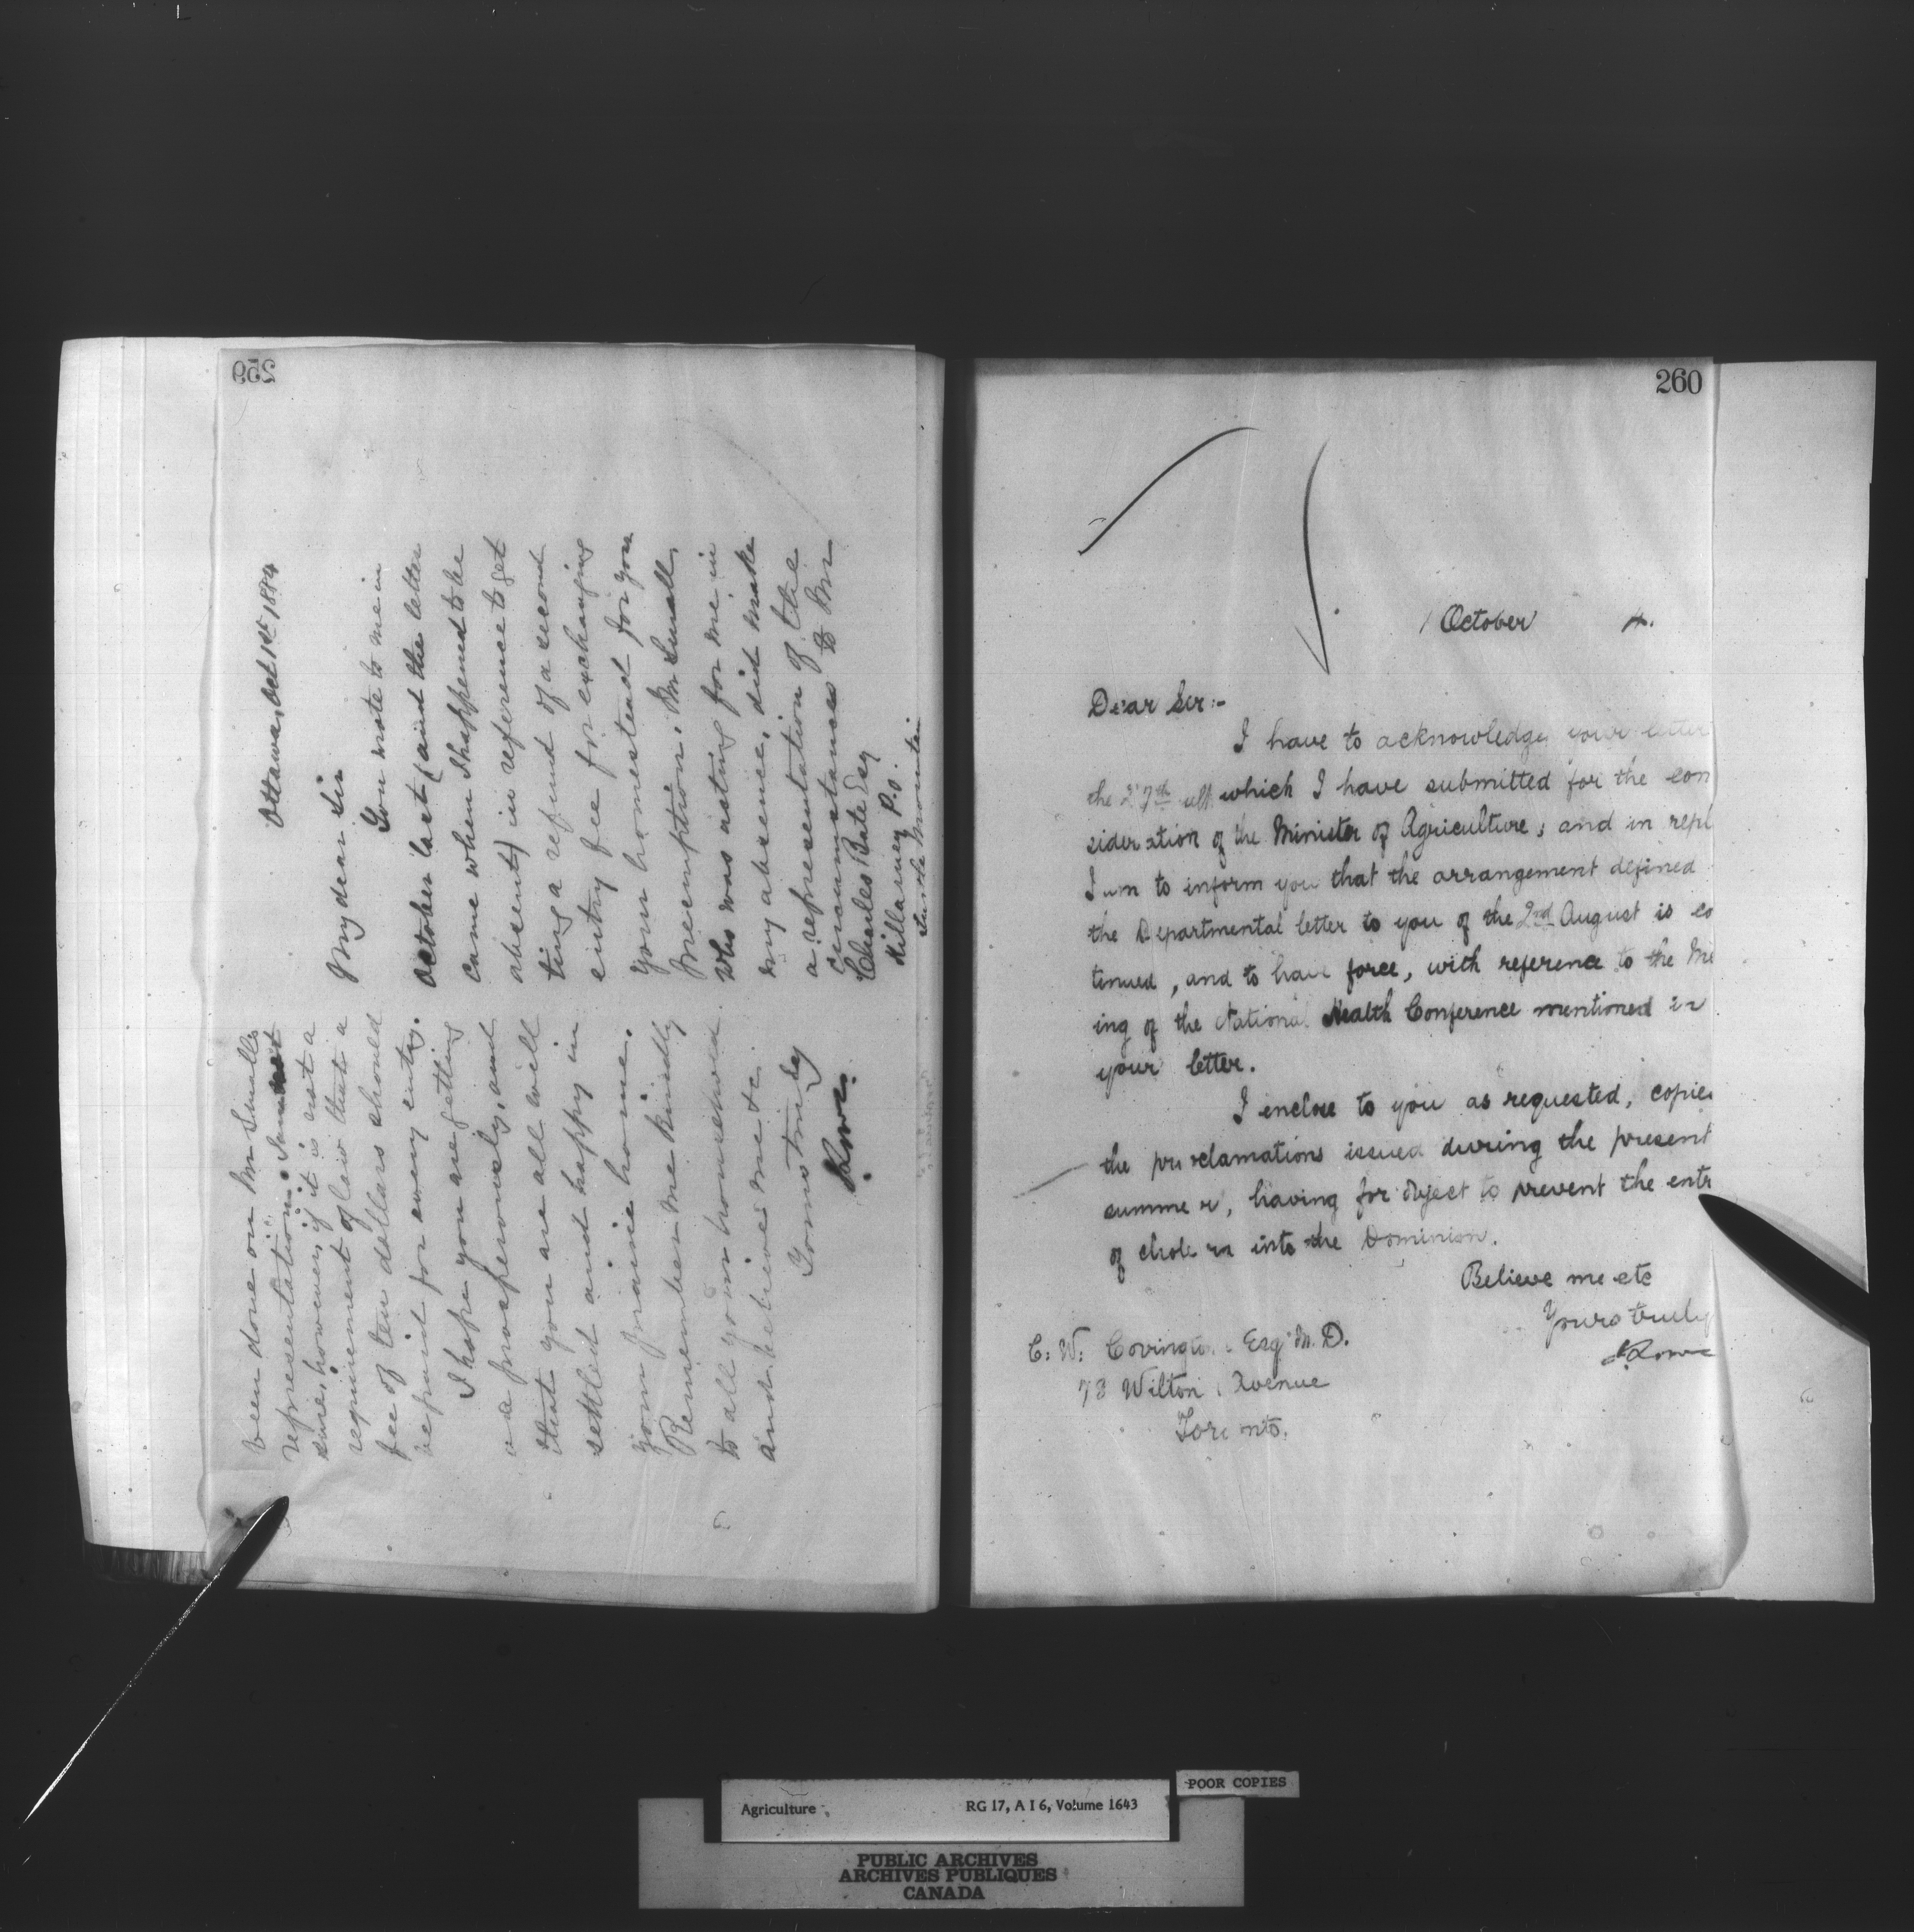 259
Ottawa, Oct 1st 1884
My dear Sir
You wrote to me in
October last (and the letter
came when I happened to be
absent) in reference to get
ting a refund of a second
entry fee for exchanging
your homestead for your
preemption. Mr Small,
who was acting for me in
my absence, did make
a representation of the
circumstances to Mr
Charles Bate Esq
Killarney P.O.
Turtle Mountain
been done on Mr Smalls
representation. I am not
sure, however, if it is not a
requirement of law that a
fee of ten dollars should
be paid for every entry.
I hope you are getting
on prosperously, and
that you are all well
settled and happy in
your prairie home.
Remember me kindly
to all your household
and believe me &c.
Yours truly
J Lowe
260
1 October 4.
Dear Sir:-
I have to acknowledge your letter
the 27th ult which I have submitted for the con
sideration of the Minister of Agriculture; and in repl
I am to inform you that the arrangement defined
the Departmental letter to you of the 2nd August is co
tinued, and to have force, with reference to the Me
ing of the National Health Conference mentioned in
your letter.
I enclose to you as requested, copies
the proclamations issued during the present
summer, having for object to prevent the entr
of cholera into the Dominion.
Believe me etc
Yours truly
J Lowe
C. W. Covington Esq M.D.
78 Wilton Avenue
Toronto.
POOR COPIES
Agriculture RG 17, A I 6, Volume 1643
PUBLIC ARCHIVES
ARCHIVES PUBLIQUES
CANADA